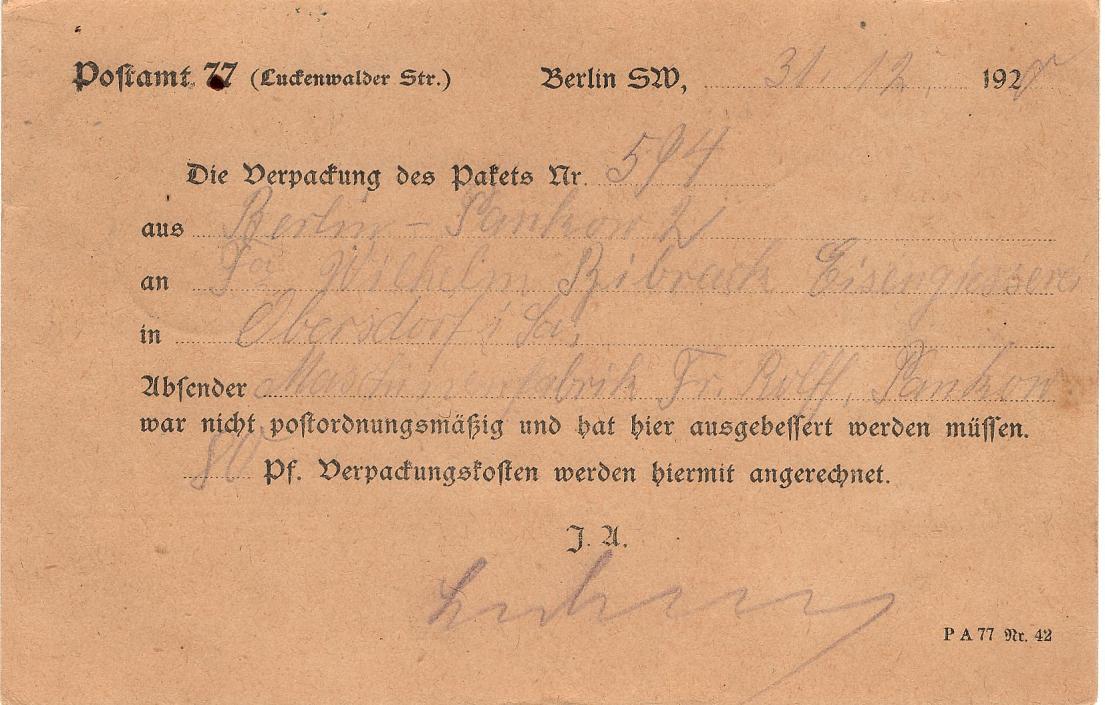 Postamt 77 (Luckenwalder Str.) Berlin SW, 31 12. 192
Die Verpackung des Pakets Nr. 594
aus Berlin - Pankow 2
an Fa. Wilhelm Bibrack Eisengiesserei
in Obersdorf i/Sa.
Absender Maschinenfabrik Fr. Rolff, Pankow
war nicht postordnungsmäßig und hat hier ausgebessert werden müssen.
80 Pf. Verpackungskosten werden hiermit angerechnet.
J. A.
P A 77 Nr. 42